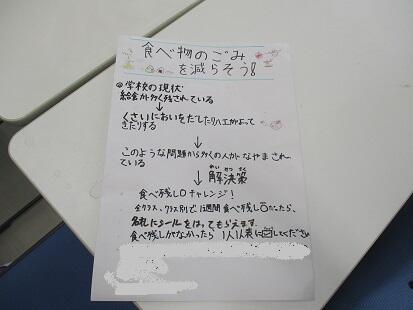 食べ物のごみ
を減らそう!
◎学校の現状
給食が多く残されている
↓
くさいにおいをだしたりハエがよって
きたりする
↓
このような問題から多くの人がなやまされ
ている
↓解決策
かいけつさく
食べ残し0チャレンジ!
全クラス、クラス別で1週間食べ残し0だったら、
名札にシールをはってもらえます
食べ残しがなかったら1人1人表に○してください